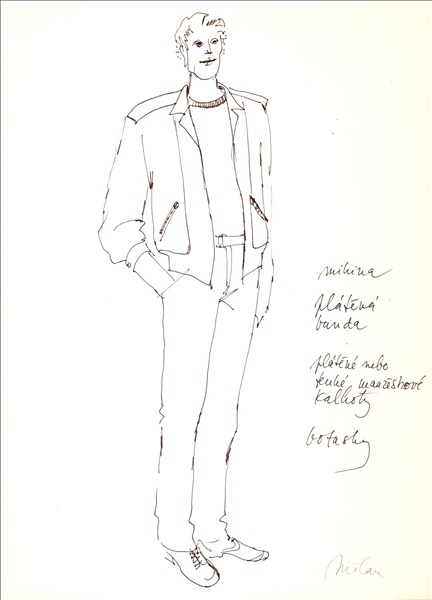 mikina
plátěná
bunda
plátěné nebo
tenké manžestrové
kalhoty
botasky
Milan